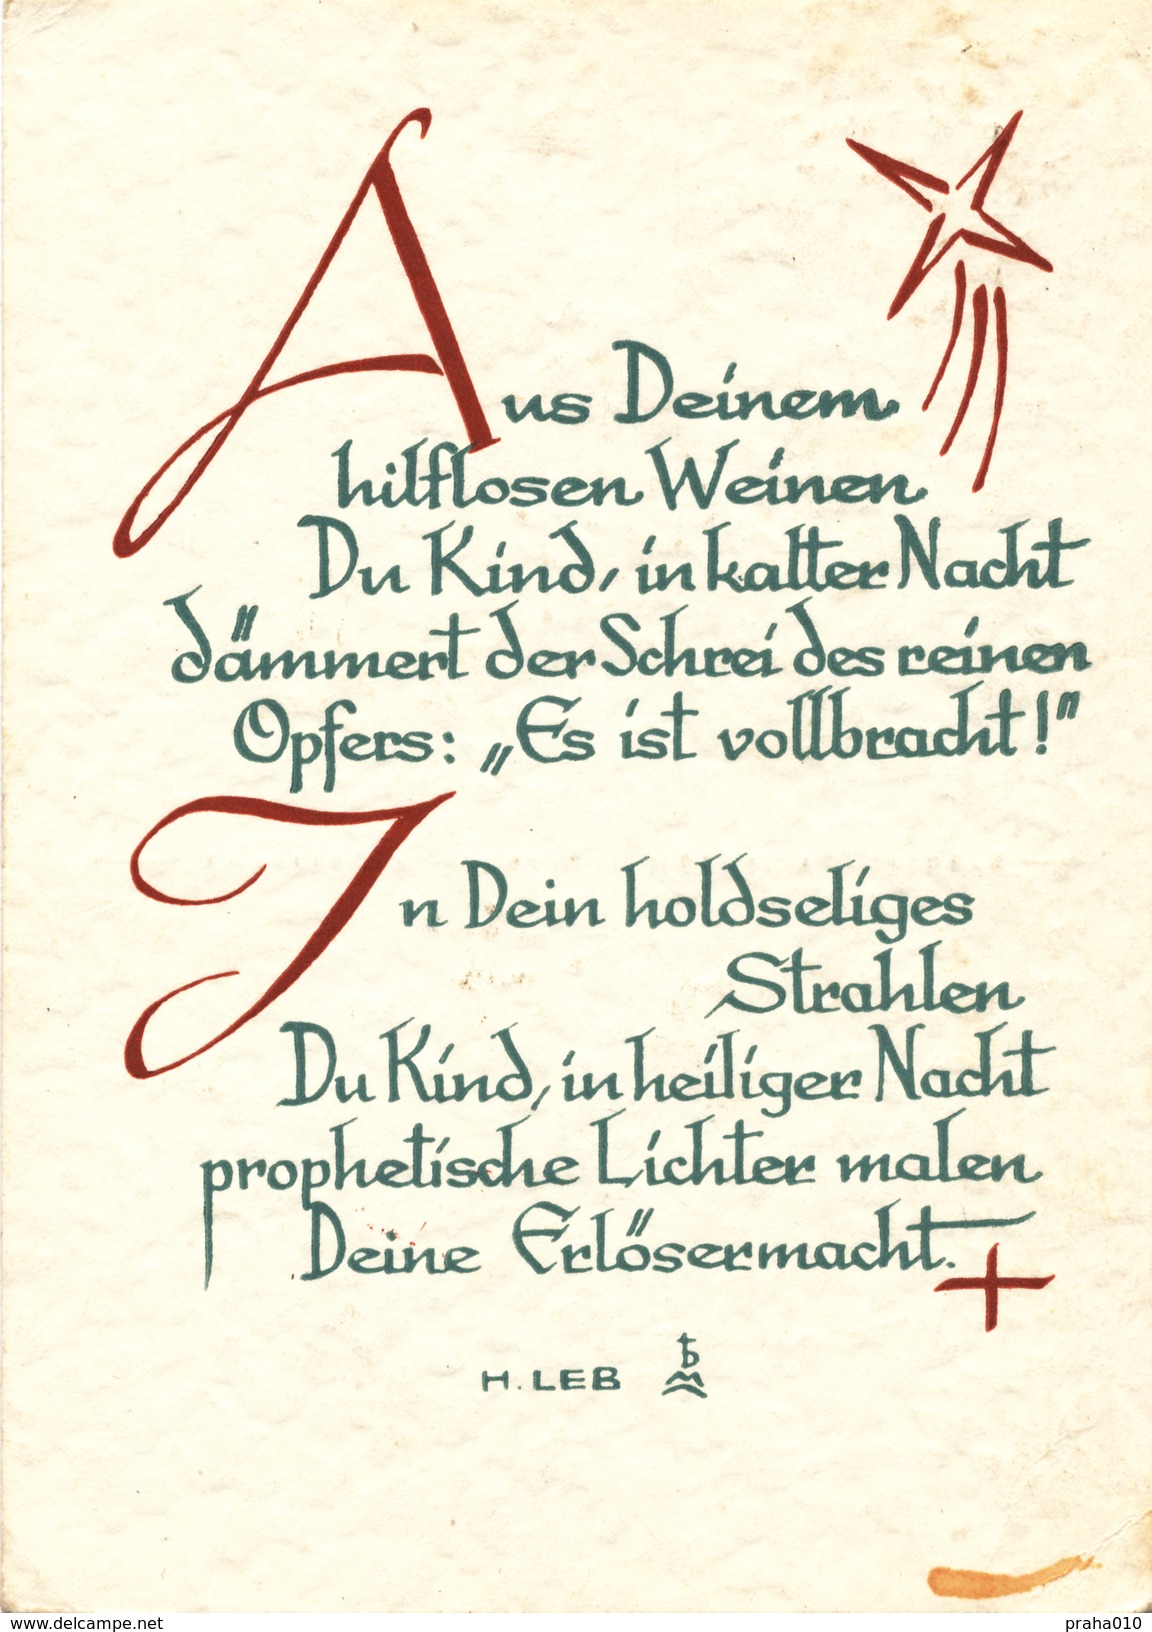 Aus Deinem
hilflosen Weinen
Du Kind, in kalter Nacht
dämmert der Schrei des reinen
Opfers: „Es ist vollbracht!"
In Dein holdseliges
Strahlen
Du Kind, in heiliger Nacht
prophetische Lichter malen
Deine Erlösermacht.
H. LEB
www.delcampe.net
praha010